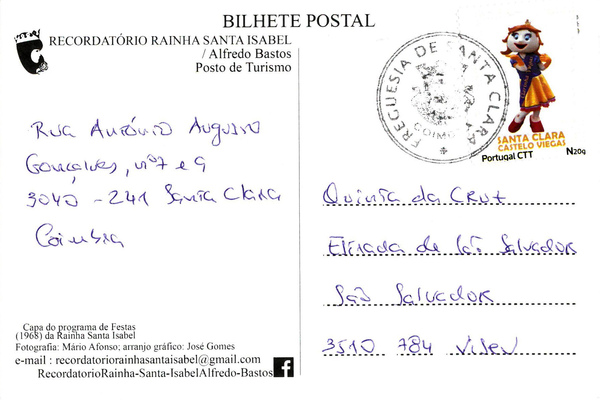 BILHETE POSTAL
RECORDATÓRIO RAINHA SANTA ISABEL
/ Alfredo Bastos
Posto de Turismo
FREGUESIA DE SANTA CLARA
COIMBRA
SANTA CLARA
CASTELO VIEGAS
Portugal CTT N20g
Rua António Augusto
Gonçalves, nº7 e 9
3040 - 241 Santa Clara
Coimbra
Quinta da Cruz
Estrada de São Salvador
São Salvador
3510 784 Viseu
Capa do programa de Festas
(1968) da Rainha Santa Isabel
Fotografia: Mário Afonso; arranjo gráfico: José Gomes
e-mail : recordatoriorainhasantaisabel@gmail.com
RecordatorioRainha-Santa-IsabelAlfredo-Bastos f